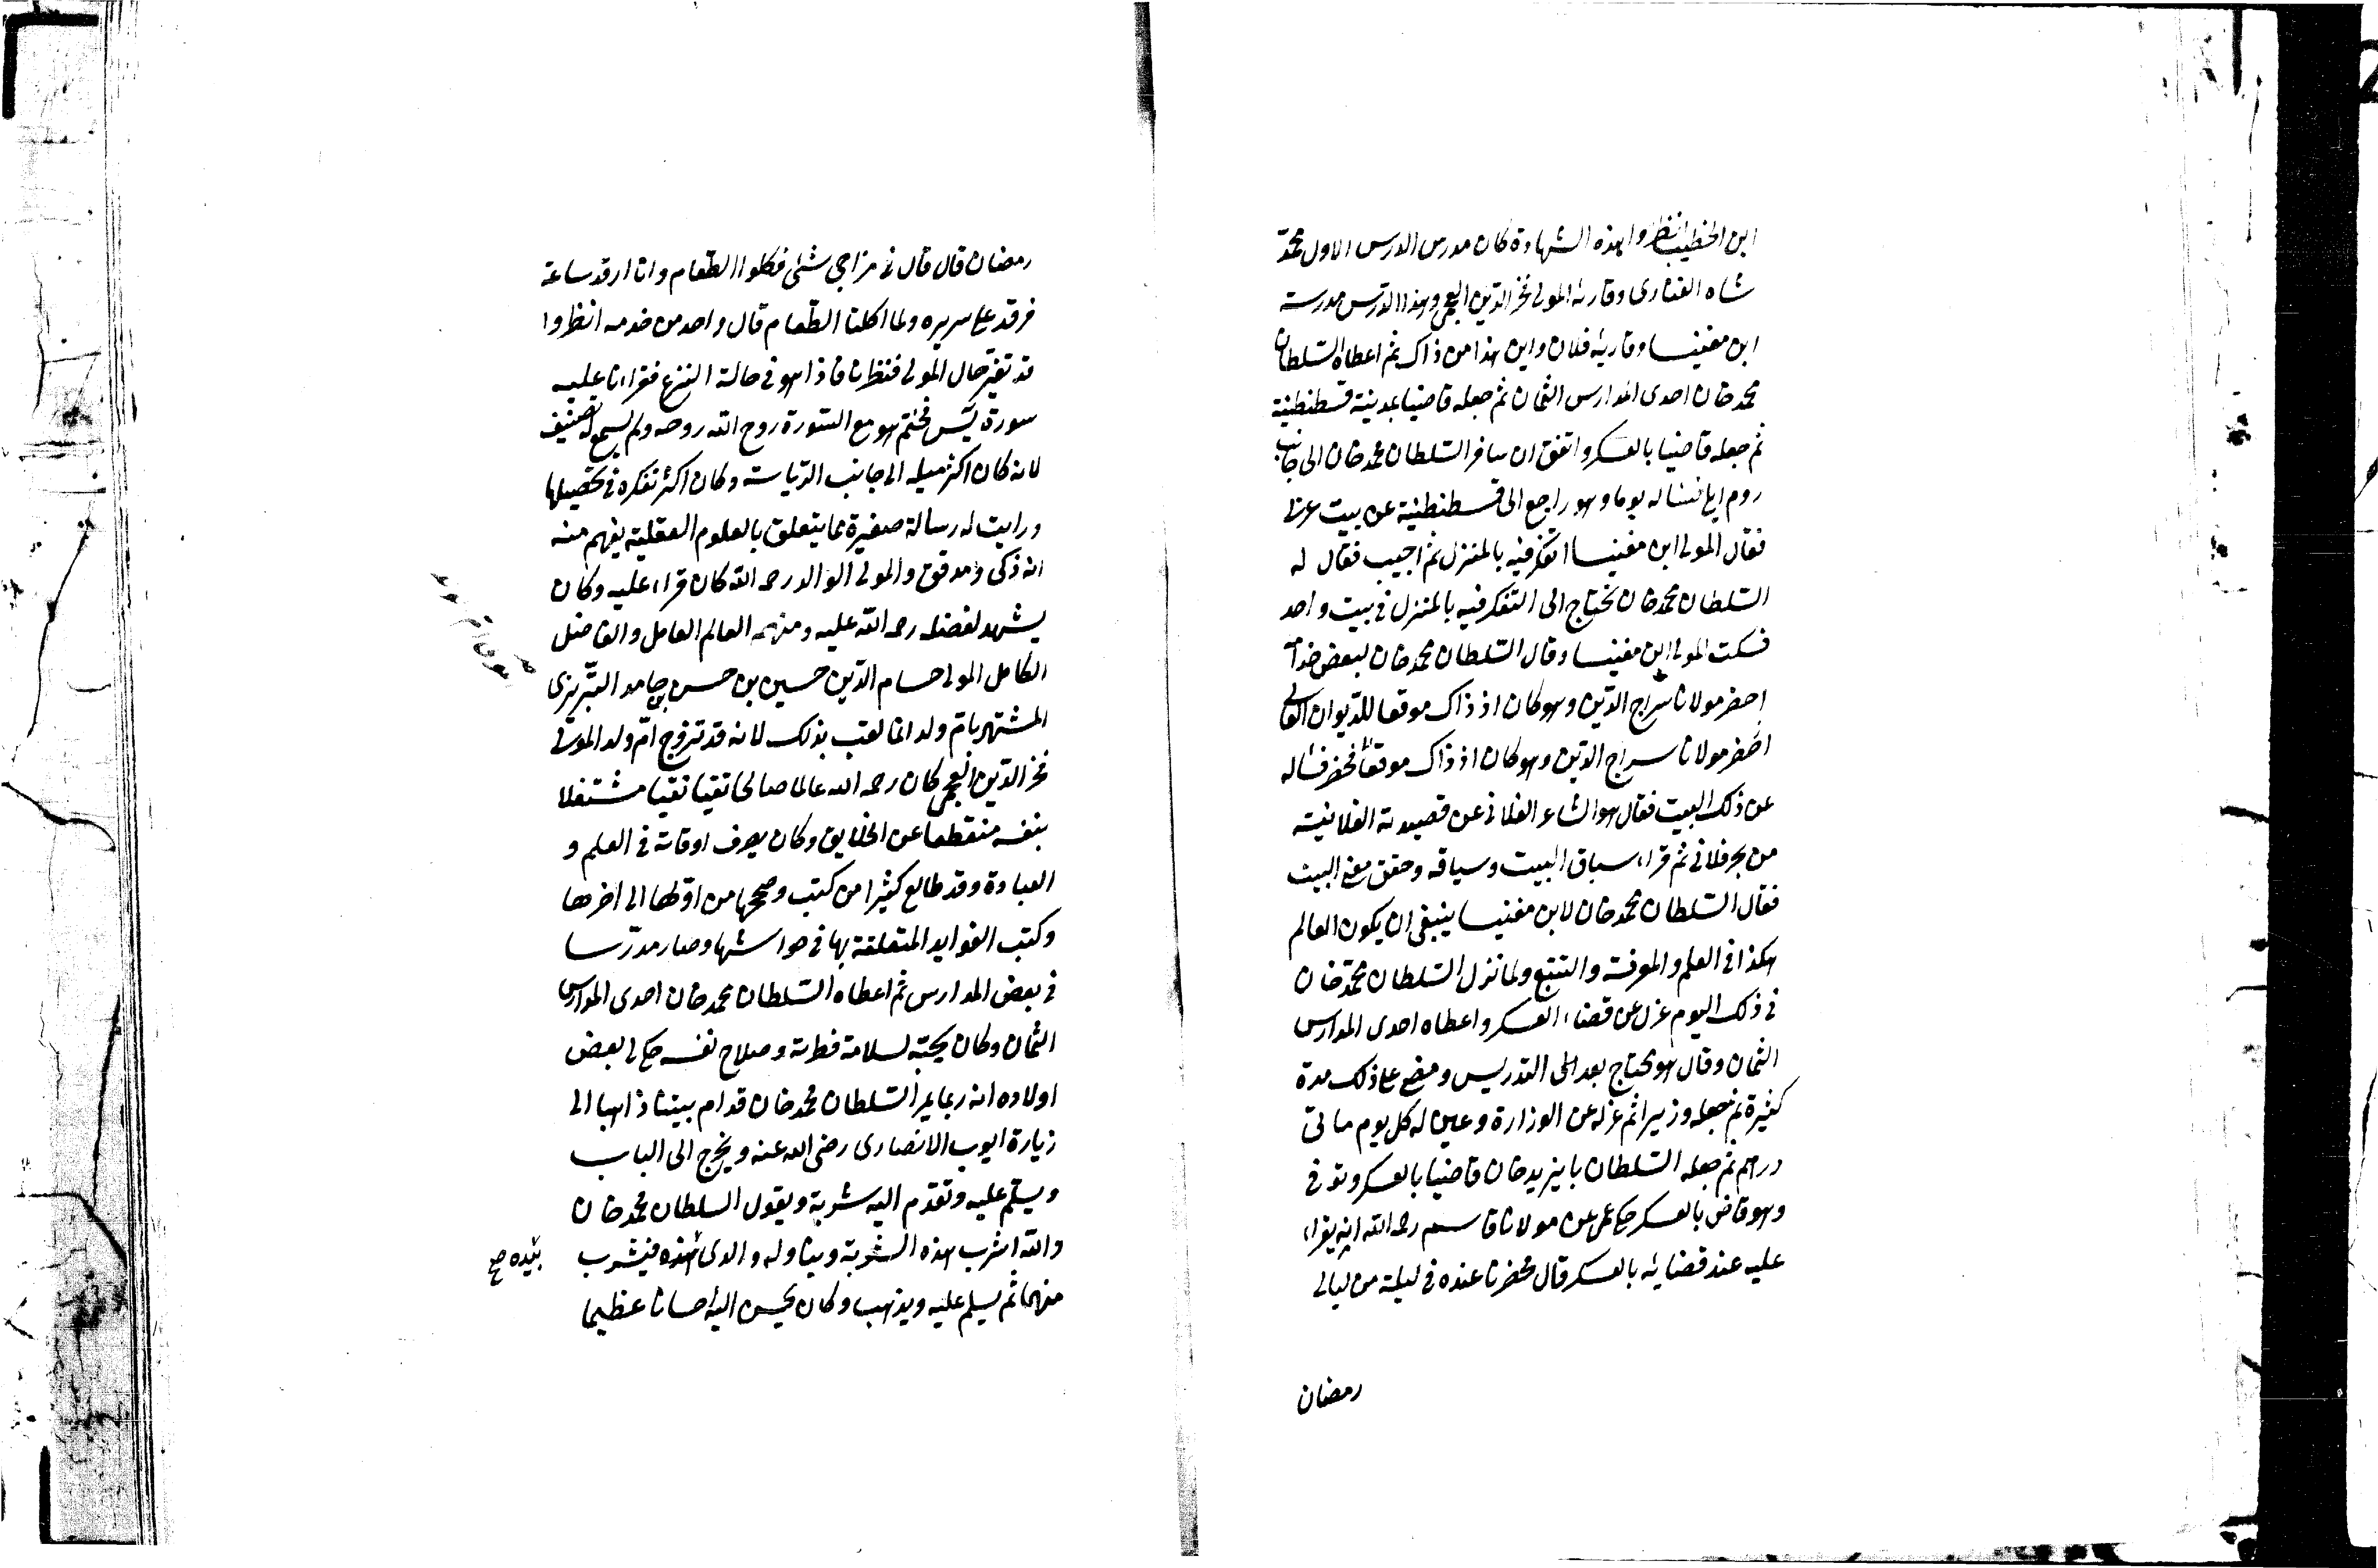 ابن الخطيب انظروا بهذه الشهادة كان مدرس الدرس الاول محمد
شاه الفنارى وقارئه المولى فخر الدين العجمى وهذا الدرس مدرسه
ابن مغنيسا وقاريه فلان واين هذا من ذاك ثم اعطاه السلطان
محمد خان احدى المدارس الثمان ثم جعله قاضيا بمدينة قسطنطنية
ثم جعله قاضيا بالعسكر واتفق ان سافر السلطان محمد خان الى جانب
روم ايلى فساله يوما وهو راجع الى قسطنطنية عن بيت عربى
فقال المولى ابن مغنيسا اتفكر فيه بالمنزل ثم اجيب فقال له
السلطان محمد خان تحتاج الى التفكر فيه بالمنزل فى بيت واحد
فسكت المولى ابن مغنيسا وقال السلطان محمد خان لبعض خدامه
احضر مولانا سراج الدين وهو كان اذ ذاك موقعا للديوان العالى
احضر مولانا سراج الدين وهو كان اذ ذاك موقعا فحضر فساله
عن ذلك البيت فقال هو الشاعر الفلانى عن قصيدته الفلانية
من بحر فلانى ثم قراء سباق البيت وسياقه وحقق معنى البيت
فقال السلطان محمد خان لابن مغنيسا ينبغى ان يكون العالم
هكذا فى العلم والمعرفة والتتبع ولما نزل السلطان محمد خان
فى ذلك اليوم عزله عن قضاء العسكر واعطاه احدى المدارس
الثمان وقال هو يحتاج بعد الى التدريس ومضى على ذلك مدة
كثيرة ثم جعله وزيرا ثم عزله عن الوزارة وعين له كل يوم مائتى
درهم ثم جعله السلطان بايزيد خان قاضيا بالعسكر وتوفى
وهو قاض بالعسكر حكى عمى عن مولانا قاسم رحمه الله انه يقراء
عليه عند قضايه بالعسكر قال فحضرنا عنده فى ليلة من ليالى
رمضان
رمضان قال قال فى مزاجى شئى فكلوا الطعام وانا ارقد ساعة
فرقد على سريره ولما اكلنا الطعام قال واحد من خدمه انظروا
قد تغير حال المولى فنظرنا فاذا هو فى حالة النزع فقراءنا عليه
سورة يس فختم هو مع السورة روح الله روحه ولم يسمع له تصنيف
لانه كان اكثر ميله الى جانب الرياسة وكان اكثر تفكره فى تحصيلها
ورايت له رسالة صغيرة مما يتعلق بالعلوم العقلية يفهم منه
انه ذكى ومدقق والمولى الوالد رحمه الله كان قراء عليه وكان
يشهد لفضله رحمة الله عليه ومنهم العالم العامل والفاضل
الكامل المولى حسام الدين حسين بن حسن بن حامد التبريزى
المشتهر بام ولد انما لقب بذلك لانه قد تزوج ام ولد المولى
فخر الدين العجمى كان رحمه الله عالما صالحا تقيا نقيا مشتغلا
بنفسه منقطعا عن الخلايق وكان يصرف اوقاته فى العلم و
العبادة وقد طالع كثيرا من كتب وصححها من اولها الى اخرها
وكتب الفوايد المتعلقة بها فى حواشيها وصار مدرسا
فى بعض المدارس ثم اعطاه السلطان محمد خان احدى المدارس
الثمان وكان يحبه لسلامة فطرته وصلاح نفسه حكى لى بعض
اولاده انه ربما يمر السلطان محمد خان قدام بيتنا ذاهبا الى
زيارة ايوب الانصارى رضى الله عنه ويخرج الى الباب
ويسلم عليه وتقدم اليه شربة ويقول السلطان محمد خان
والله اشرب هذه الشربة ويناوله والدى هذه فيشرب
بيده صح
منها ثم يسلم عليه ويذهب وكان يحسن اليه احسانا عظيما